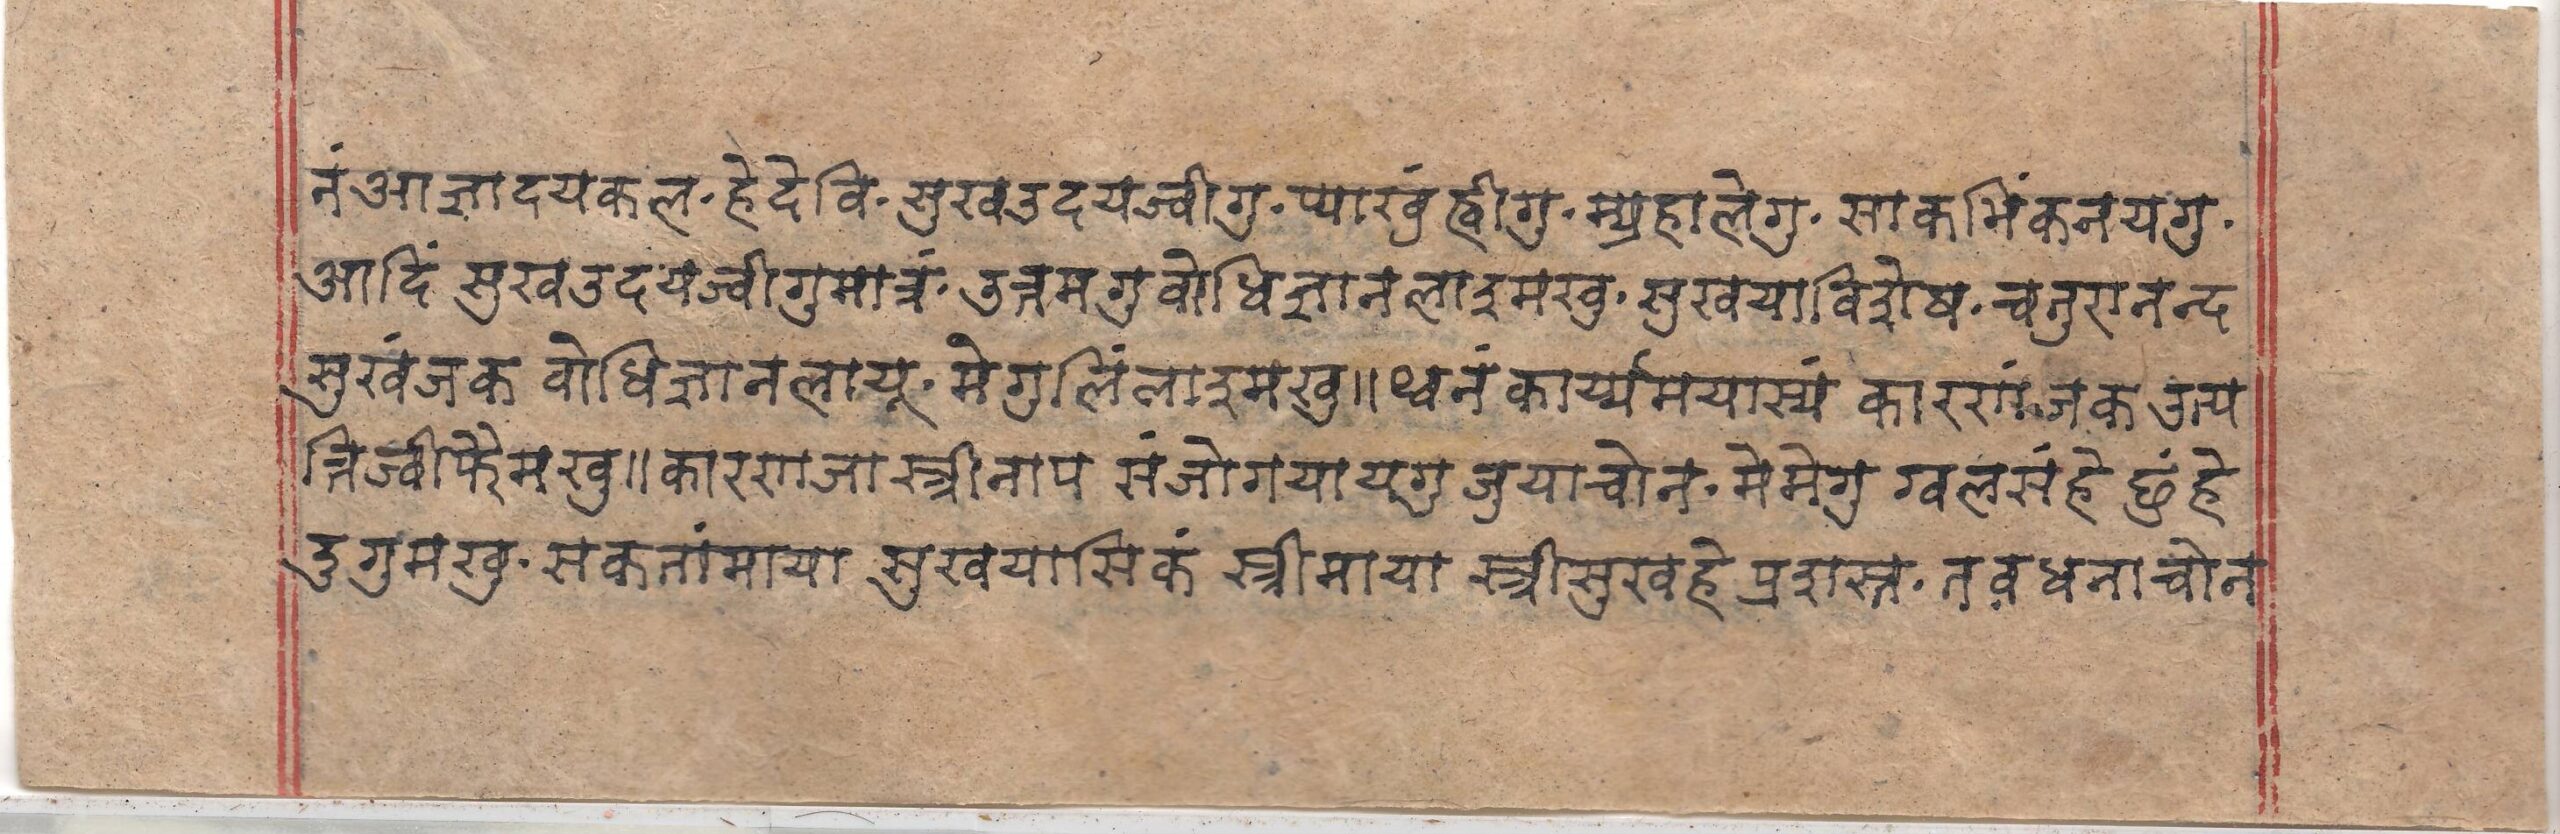 नं आज्ञादयकल· हेदेवि· सुखउदयज्वीगु· प्याखंह्वीगु· म्ये्हालेगु· साकभिंकनयगु·
आदिं सुखउदयज्वीगुमात्रं· उत्तमगुवोधिज्ञानलाइमखु· सुखयाविशेष· चतुरानन्द
सुखंजक वोधिज्ञानलायू· मेगुलिंलाइमखु॥ थ्वनं कार्य्यमयास्यं कारणंजक उत्प
त्तिज्वीफैमखु॥ कारणजा स्त्रीनाप संजोगयायगु जुयाचोन· मेमेगु ग्वलसंहे छुं हे
दुगुमखु· सकतांमाया सुखयासिकं स्त्रीमाया स्त्रीसुखहे प्रशस्त· तवधनाचोन